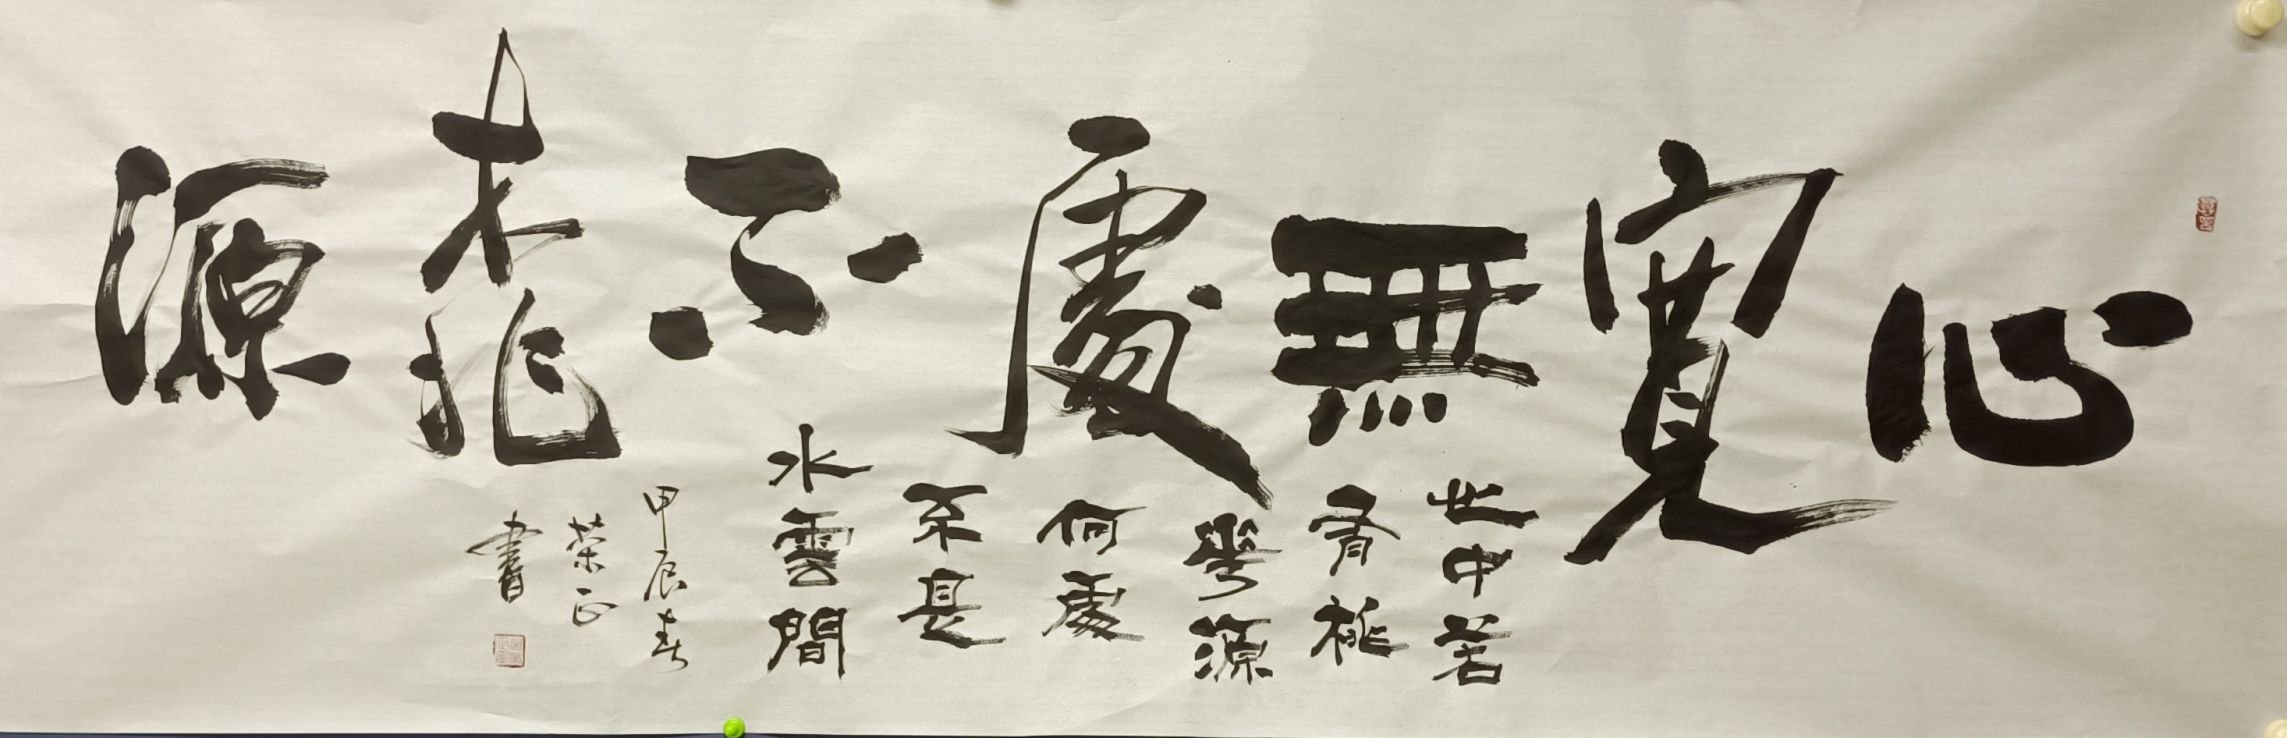 心寬無處不桃源
世中若
有桃
華源
何處
不是
水雲間
甲辰春
荣正
書